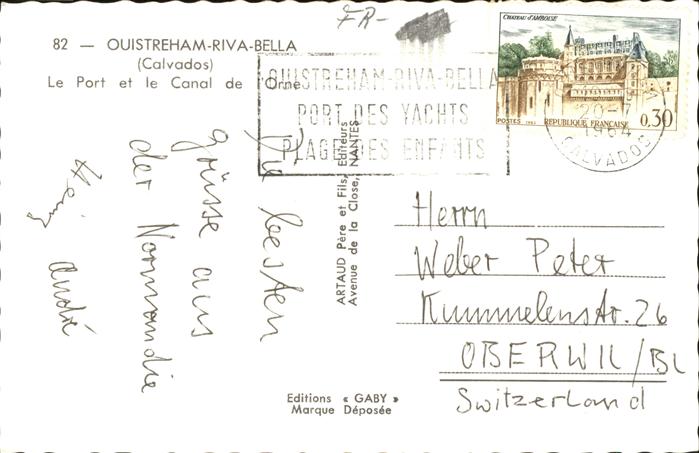 FR-
82 — OUISTREHAM-RIVA-BELLA
(Calvados)
Le Port et le Canal de l'Orne
OUISTREHAM-RIVA-BELLA
PORT DES YACHTS
PLAGE DES ENFANTS
CHATEAU d'AMBOISE
0,30
POSTES 1963 REPUBLIQUE FRANCAISE
20-7
1964
CALVADOS
Die besten
grüsse aus
der Normandie
Heinz André
ARTAUD Père et Fils, Editeurs
Avenue de la Close, NANTES
Herrn
Weber Peter
Kummelenstr. 26
OBERWIL/BL
Switzerland
Editions « GABY »
Marque Déposée